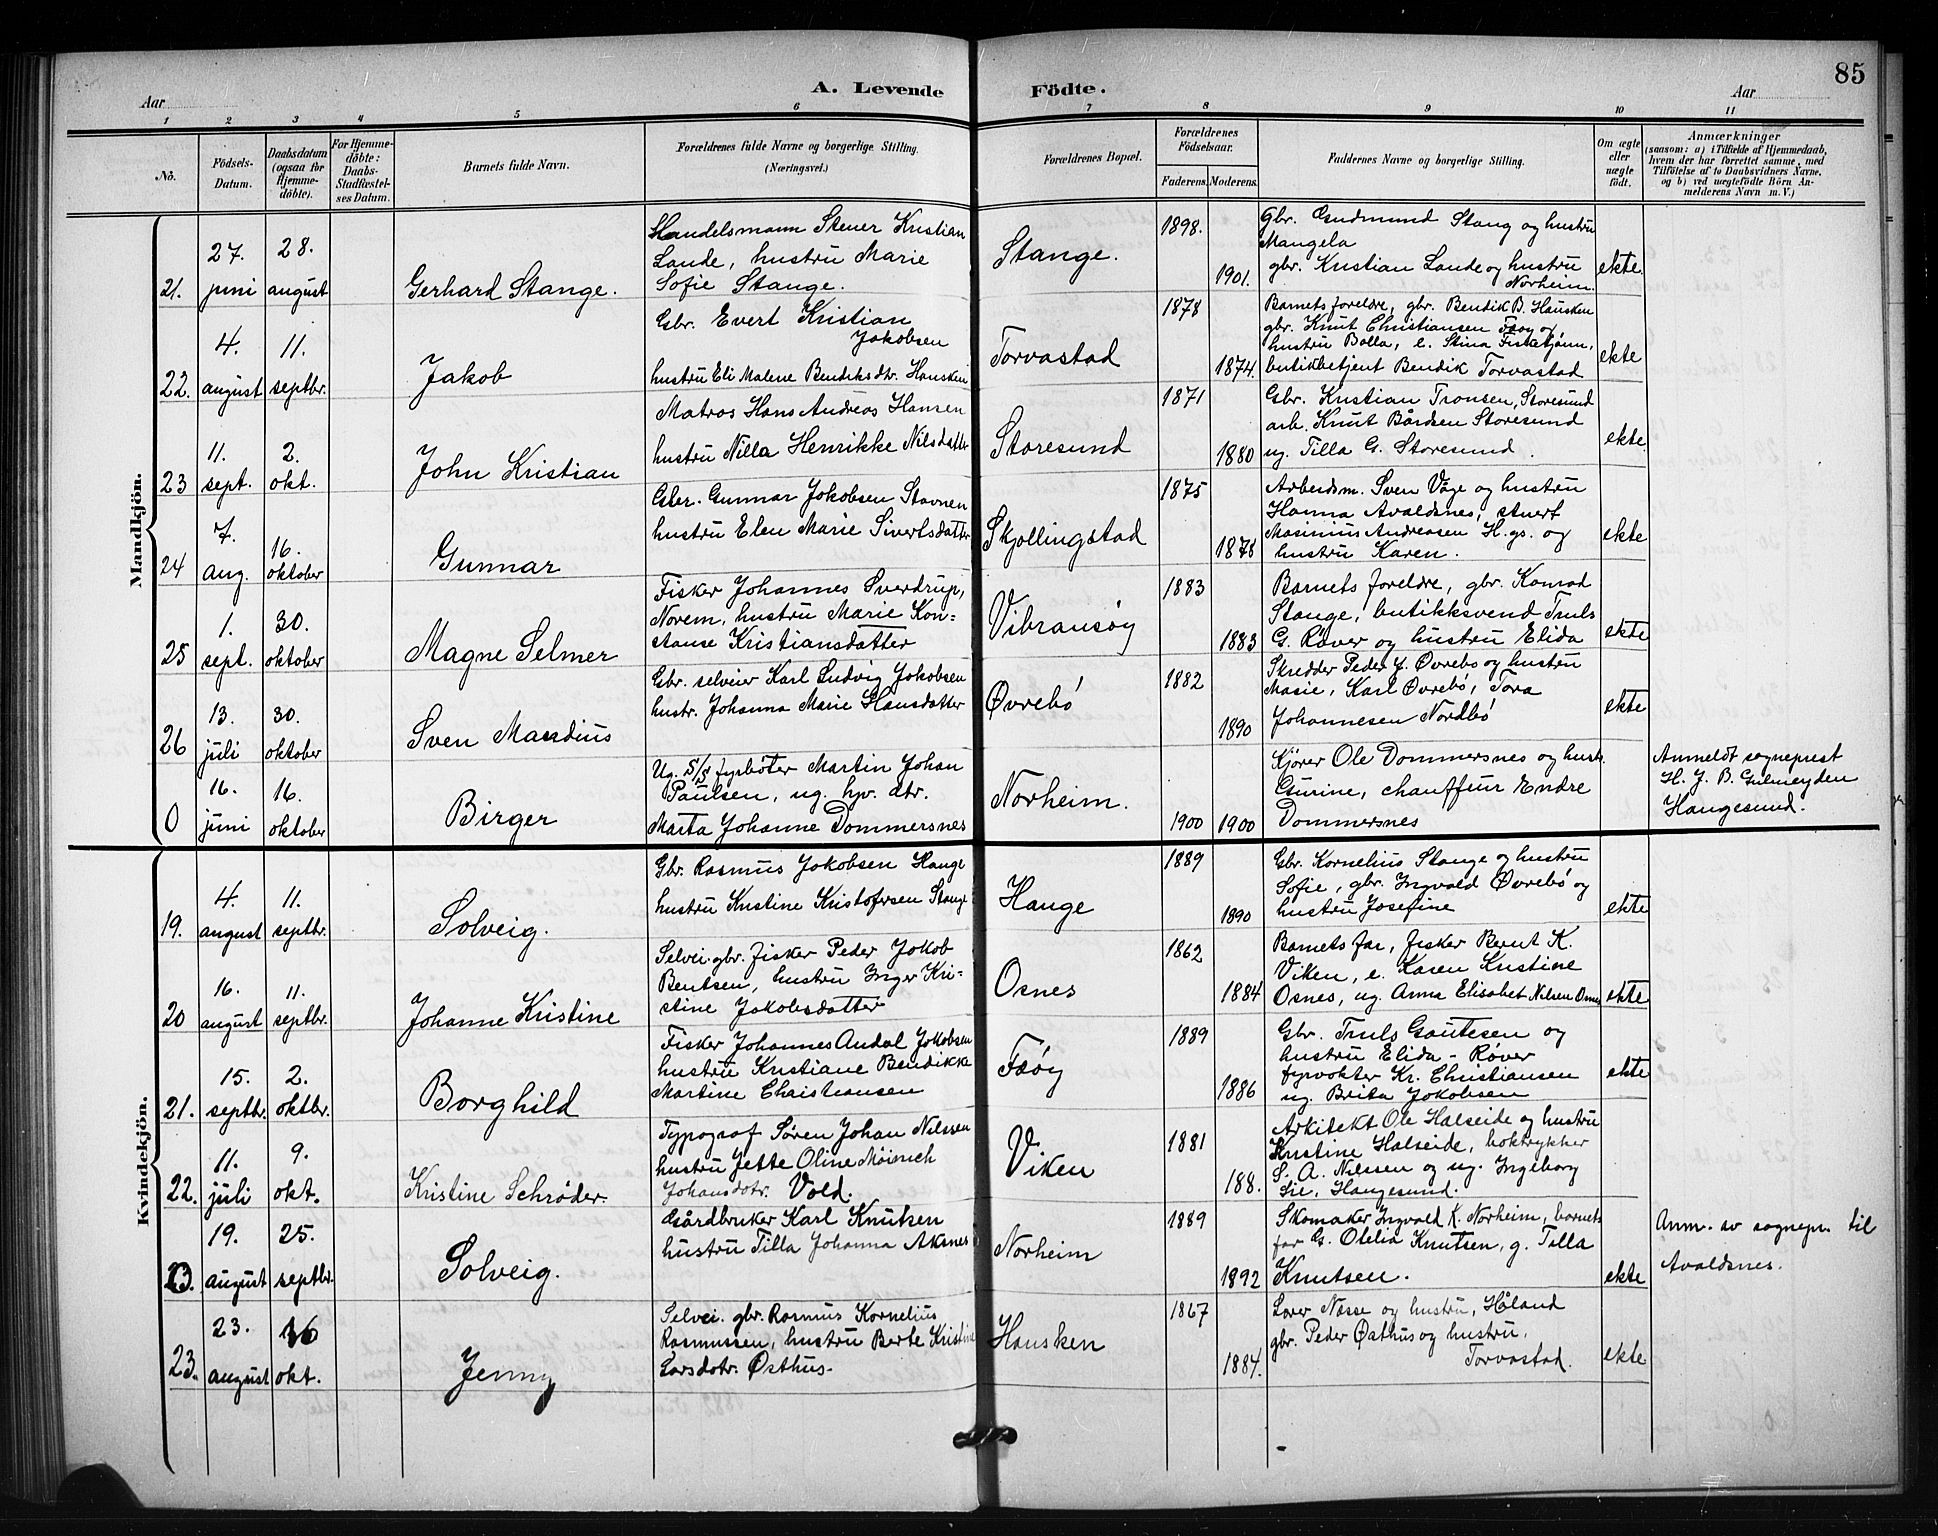 85
Aar
A. Levende Födte.
Aar
1 2 3 4 5 6 7 8 9 10 11
No.
Födsels-Datum.
Daabsdatum (ogsaa for Hjemme-döbte).
For Hjemme-döbte: Daabs-Stadfæstel-ses Datum.
Barnets fulde Navn.
Forældrenes fulde Navne og borgerlige Stilling.
(Næringsvei.)
Forældrenes Bopæl.
Forældrenes Födselsaar.
Faderens. Moderens.
Faddernes Navne og borgerlige Stilling.
Om ægte eller uægte födt.
Anmærkninger
(saasom: a) i Tilfælde af Hjemmedaab,
hvem der har forrettet samme, med
Tilföielse af to Daabsvidners Navne,
og b) ved uægtefödte Börn An-
melderens Navn m. V.)
Mandkjön.
21. 27. juni 28. august
Gerhard Stange.
Handelsmann Stener Kristian
Lande, hustru Marie
Sofie Stange.
Stange.
1898. 1901.
Gbr. Gudmund Stang og hustru
Mangela
gbr. Kristian Lande og hustru
Norheim.
ekte
22. 4. august 11. septbr.
Jakob
Gbr. Evert Kristian
Jakobsen
hustru Eli Malene Bendiksdtr. Hausken
Torvastad
1878 1874.
Barnets foreldre, gbr. Bendik B. Hausken
gbr. Knut Christiansen Fæøy og
hustru Bolla, e. Stina Fisketjønn,
butikbetjent Bendik Torvastad
ekte
23 11. sept. 2. okt.
John Kristian
Matros Hans Andreas Hansen
hustru Nilla Henrikke Nilsdatter
Storesund
1871 1880
Gbr. Kristian Tronsen, Storesund
arb. Knut Bårdsen Storesund
ug. Tilla G. Storesund.
ekte
24 7. aug. 16. oktober
Gunnar
Gbr. Gunnar Jakobsen Stavnen
hustru Elen Marie Sivertsdatter
Skjollingstad
1875 1878
Arbeidsm. Sven Våge og hustru
Hanna Avaldsnes, stuert
Masinius Andreasen H.gs. og
hustru Karen.
ekte
25 1. sept. 30. oktober
Magne Selmer
Fisker Johannes Sverdrup,
Norem, hustru Marie Kon-
stanse Kristiansdatter
Vibransøy
1883 1883
Barnets foreldre, gbr. Konrad
Stange, butikksvend Truls
G. Røver og hustru Elida
ekte
26 13. juli 30. oktober
Sven Mandius
Gbr. selveier Karl Ludvig Jakobsen
hustr. Johanna Marie Hansdatter
Øvrebö
1882 1890
Skredder Peder J. Øvrebö og hustru
Masie, Karl Øvrebö, Tora
Johannesen Nordbö
ekte
0 16. juni 16. oktober
Birger
Ug. S/S fyrböter Martin Johan
Paulsen, ug. hjv. dtr.
Marta Johanne Dommersnes
Norheim.
1900 1900
Kjörer Ole Dommersnes og hust.
Gurine, chauffeur Endre
Dommersnes
Anmeldt sogneprest
H. J. B. Gulmeyden
Haugesund.
Kvindekjön.
19. 4. august 11. septbr.
Solveig.
Gbr. Rasmus Jakobsen Hauge
hustru Kristine Kristofersen Stange
Hauge
1889 1890
Gbr. Kornelius Stange og hustru
Sofie, gbr. Ingvald Øvrebö og
hustru Josefine
ekte
20 16. august 11. septbr.
Johanne Kristine
Selvei. gbr. fisker Peder Jakob
Bentsen, hustru Inger Kri-
stine Jakobsdatter
Osnes
1862 1884
Barnets far, fisker Bernt K.
Viken, e. Karen Kristine
Osnes, ug. Anna Elisabet Nilsen Osnes
ekte
21. 15. septbr. 2. oktbr.
Borghild
Fisker Johannes Andal Jakobsen
hustru Kristiane Bendikke
Martine Christiansen
Fæöy
1889 1886
Gbr. Truls Gautesen og
hustru Elida - Røver
fyrvokter Kr. Christiansen
ug. Brita Jakobsen
ekte
22. 11. juli 9. okt.
Kristine Schrøder.
Typograf Søren Johan Nilssen
hustru Jette Oline Möinich
Johansdotr. Vold.
Viken
1881 188.
Arkitekt Ole Halseide og hustru
Kristine Halseide, boktrykker
S. A. Nilssen og ug. Ingeborg
Lie, Haugesund.
0. 19. august 25. septbr.
Solveig.
Gårdbruker Karl Knutsen
hustru Tilla Johanna Aksnes
Norheim
1889 1892
Skomaker Ingvald K. Norheim, barnets
far G. Otelia Knutsen, g. Tilla
Knutsen.
ekte
Anm. sv sognepr. til
Avaldsnes.
23. 23. august 16 okt.
Jenny
Selvei. gbr. Rasmus Kornelius
Rasmussen, hustru Berte Kristine
Larsdotr. Østhus
Hausken
1867 1884.
Lærer Næsse og hustru, Håland
gbr. Peder Østhus og hustru,
Torvastad.
ekte